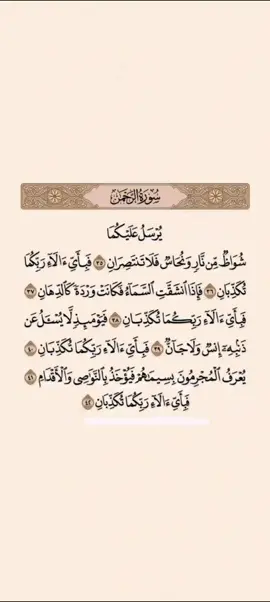 سُورَةُ الرَّحْمَٰن
يُرْسَلُ عَلَيْكُمَا
شُوَاظٌ مِّن نَّارٍ وَنُحَاسٌ فَلَا تَنتَصِرَانِ ٣٥ فَبِأَيِّ ءَالَآءِ رَبِّكُمَا
تُكَذِّبَانِ ٣٦ فَإِذَا ٱنشَقَّتِ ٱلسَّمَآءُ فَكَانَتْ وَرْدَةً كَٱلدِّهَانِ ٣٧
فَبِأَيِّ ءَالَآءِ رَبِّكُمَا تُكَذِّبَانِ ٣٨ فَيَوْمَئِذٍ لَّا يُسْـَٔلُ عَن
ذَنۢبِهِۦٓ إِنسٌ وَلَا جَآنٌّ ٣٩ فَبِأَيِّ ءَالَآءِ رَبِّكُمَا تُكَذِّبَانِ ٤٠
يُعْرَفُ ٱلْمُجْرِمُونَ بِسِيمَٰهُمْ فَيُؤْخَذُ بِٱلنَّوَٰصِى وَٱلْأَقْدَامِ ٤١
فَبِأَيِّ ءَالَآءِ رَبِّكُمَا تُكَذِّبَانِ ٤٢